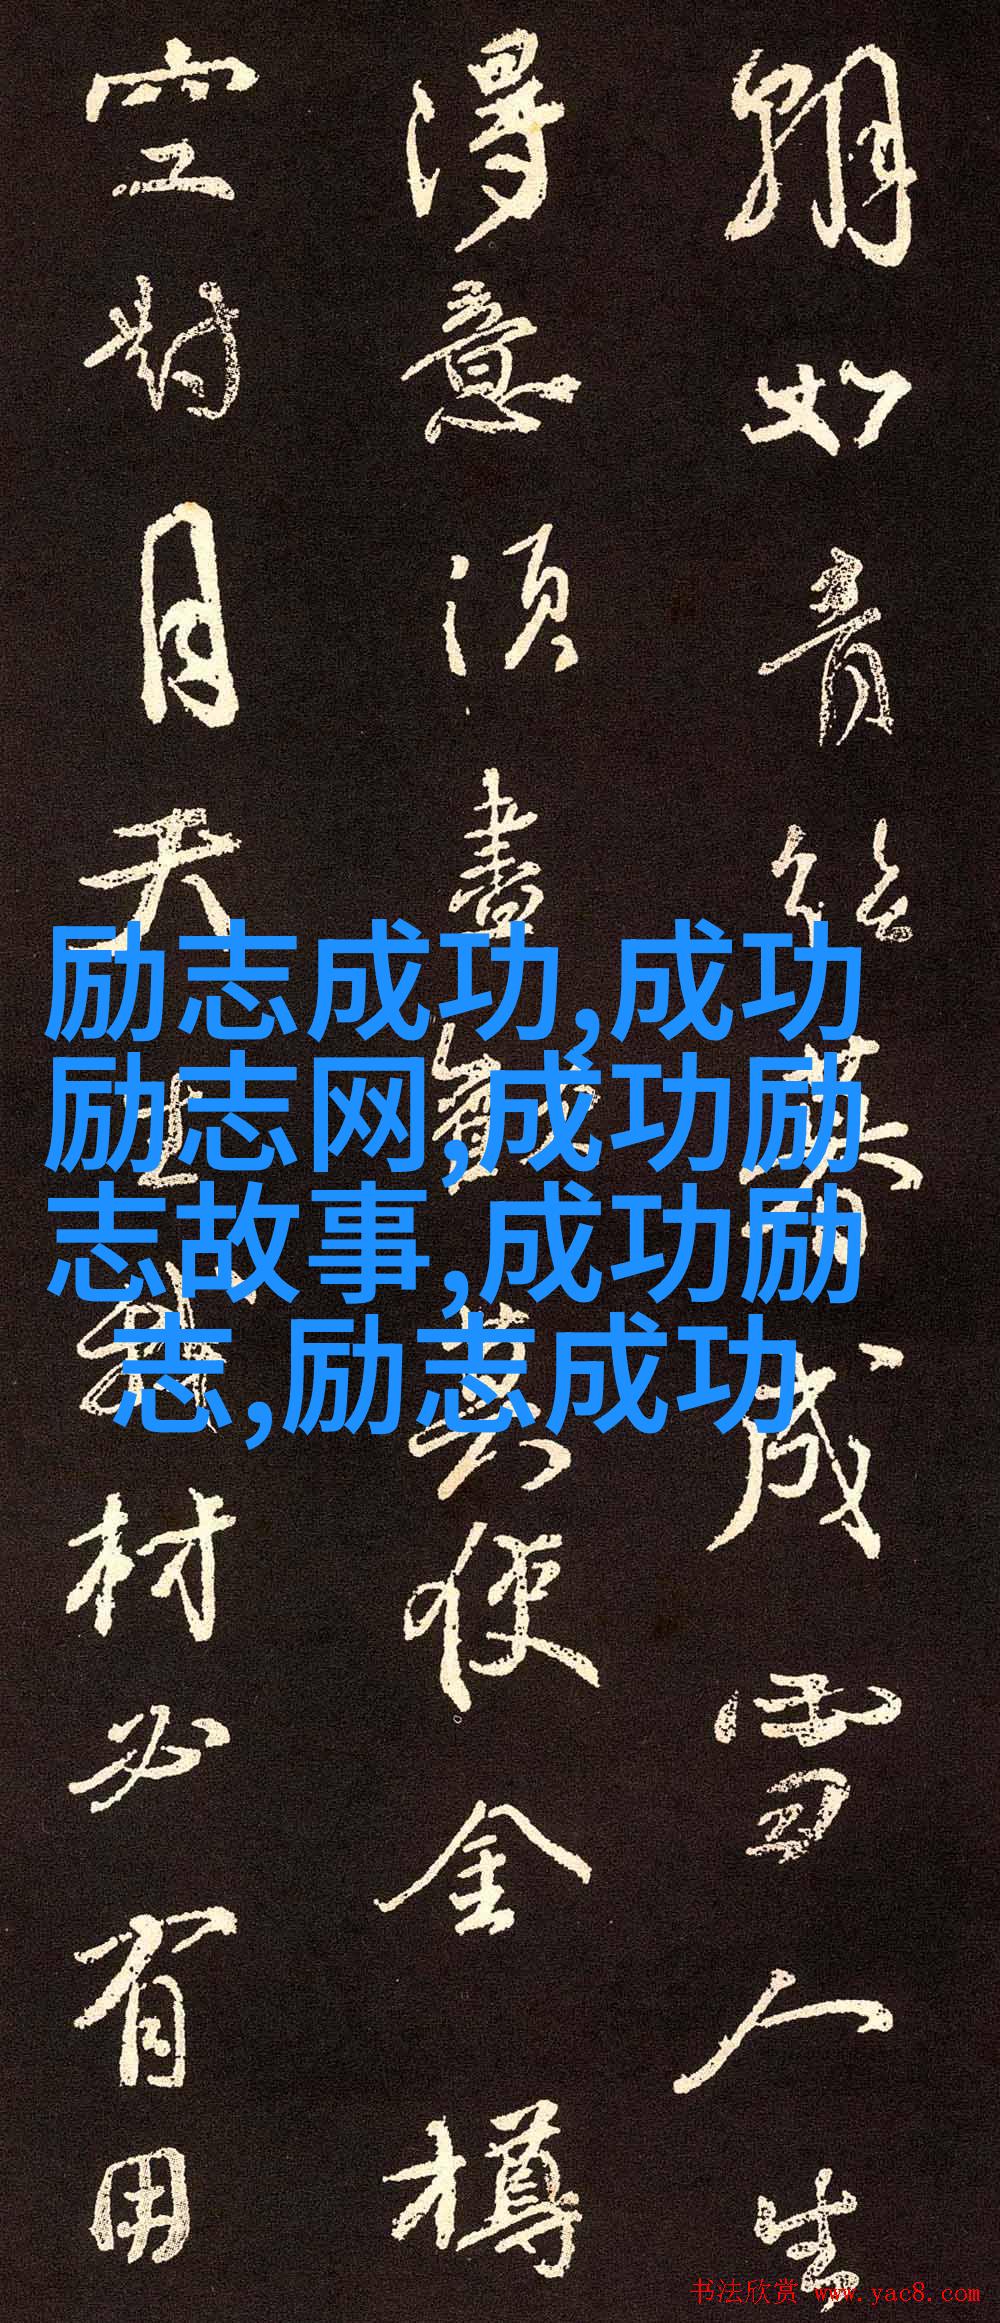 朝如青絲暮成雪人生
得意須盡歡莫使金樽
空對月天生我材必有用
励志成功,成功
励志网,成功励
志故事,成功励
志,励志成功
书法欣赏 www.yac8.com